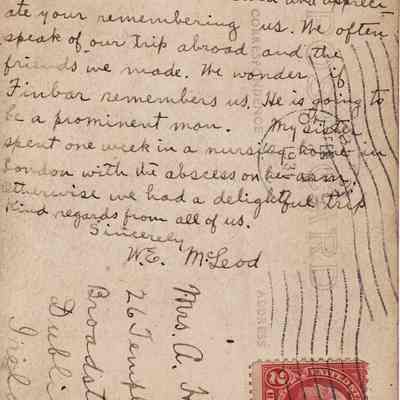 and appreci-
ate your remembering us. We often
speak of our trip abroad and the
friends we made. We wonder if
Finbar remembers us. He is going to
be a prominent man. My sister
spent one week in a nursing home in
London with the abscess on her arm,
otherwise we had a delightful trip
Kind regards from all of us.
Sincerely
W.E. McLeod
Mrs. A.
26 Templ
Broadst
Dubli
CORRESPONDENCE
ADDRESS
2
UNITED